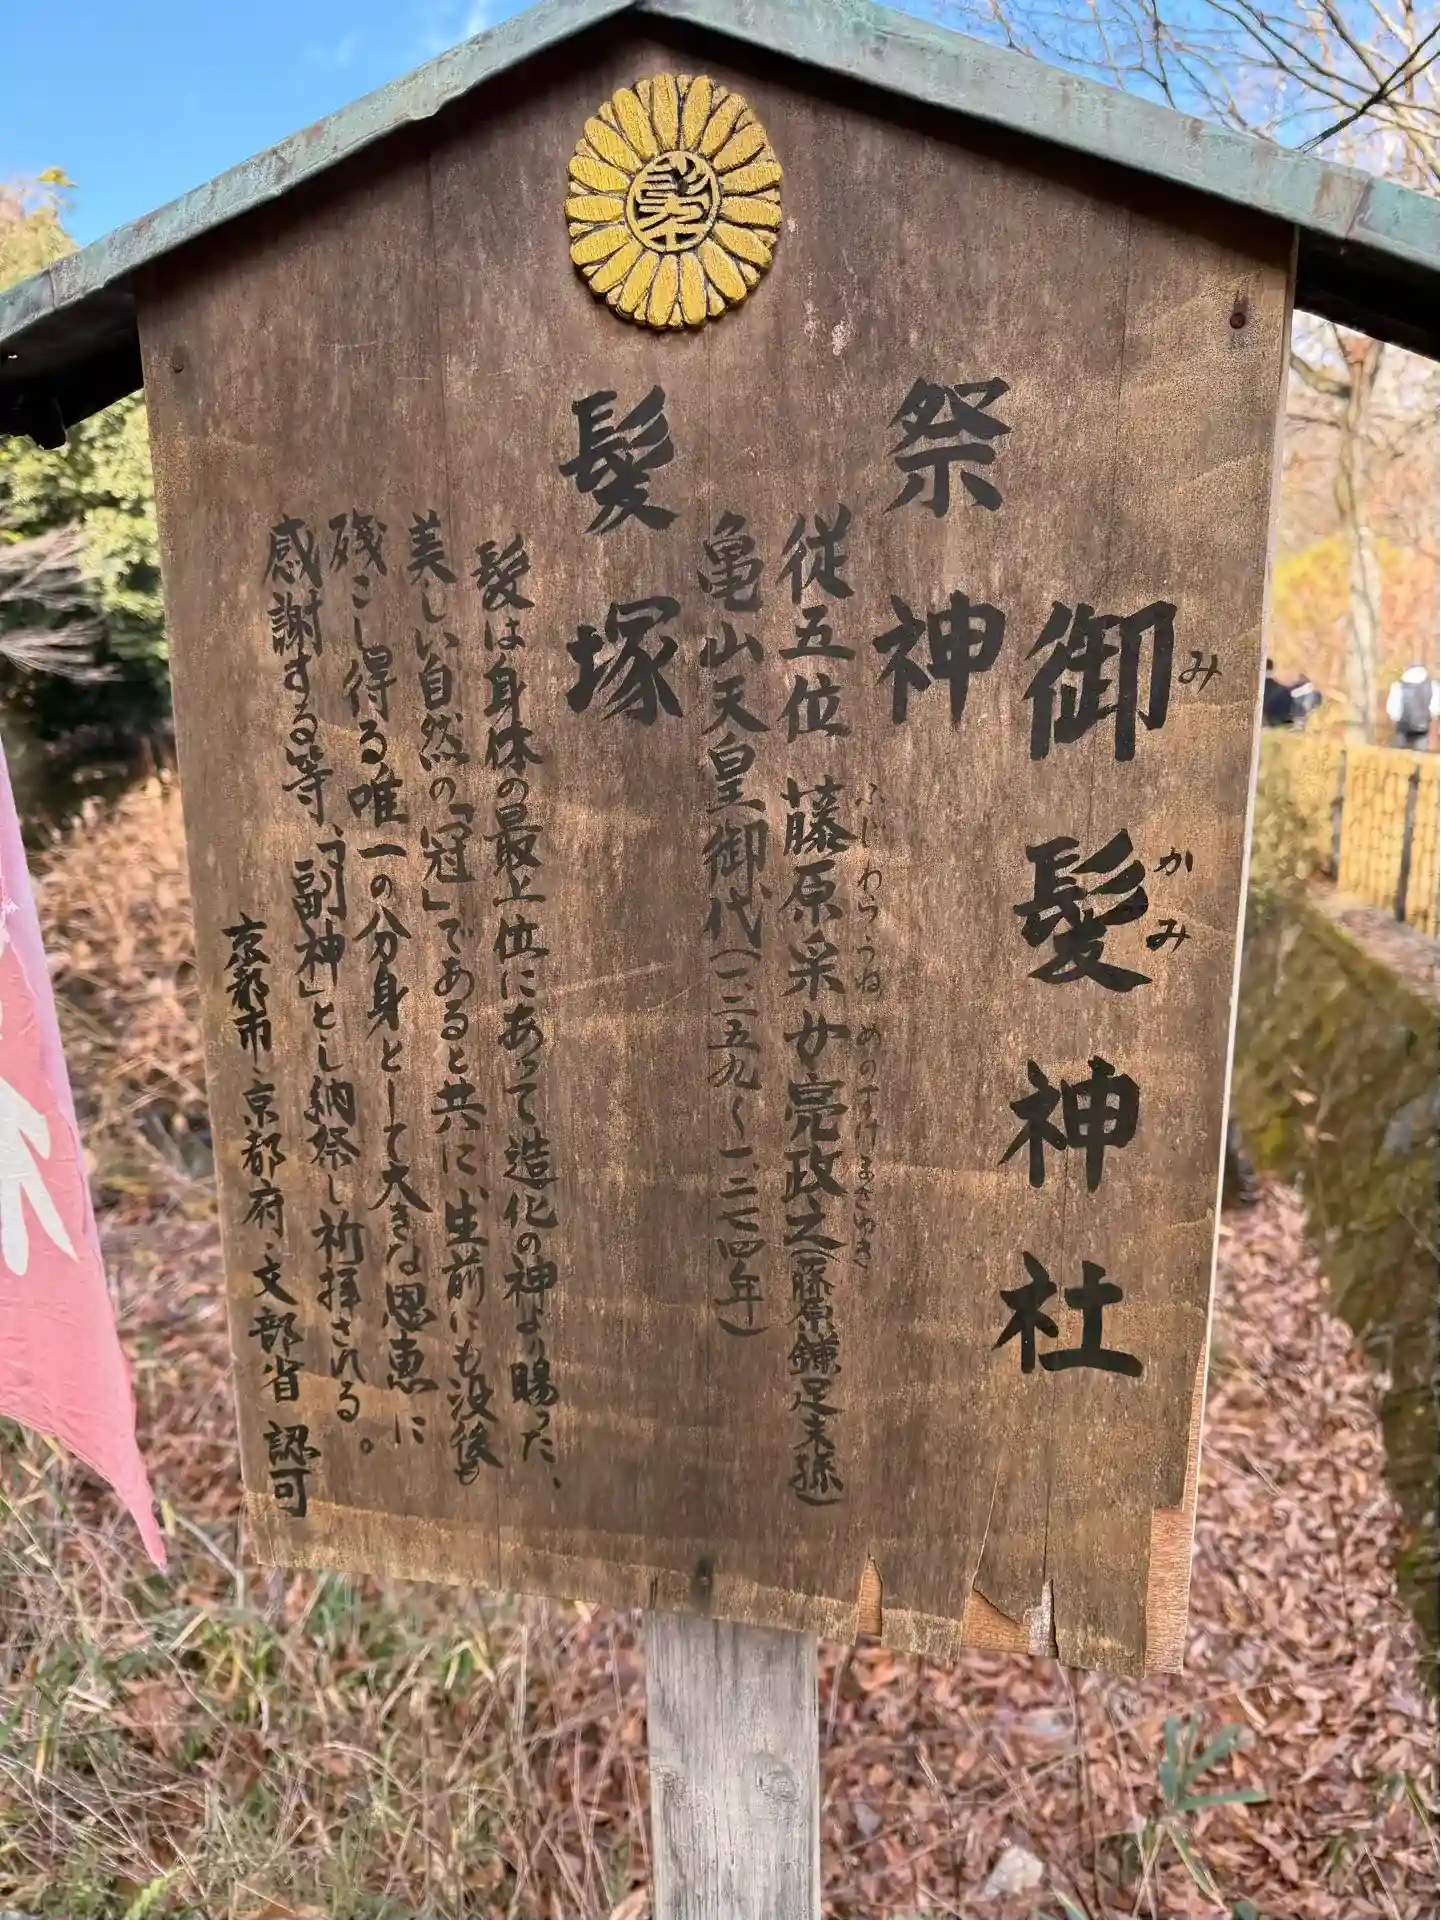 御髪神社
みかみ
祭神
従五位 藤原采女亮政之(藤原鎌足末孫)
ふじわらうねめのすけまさゆき
亀山天皇御代(一、二五九〜一、二七四年)
髪塚
髪は身体の最上位にあって造化の神より賜った、
美しい自然の「冠」であると共に、生前にも没後も
残こし得る唯一の分身として大きな恩恵に
感謝する等、「副神」とし納祭し祈拝される。
京都市、京都府、文部省 認可